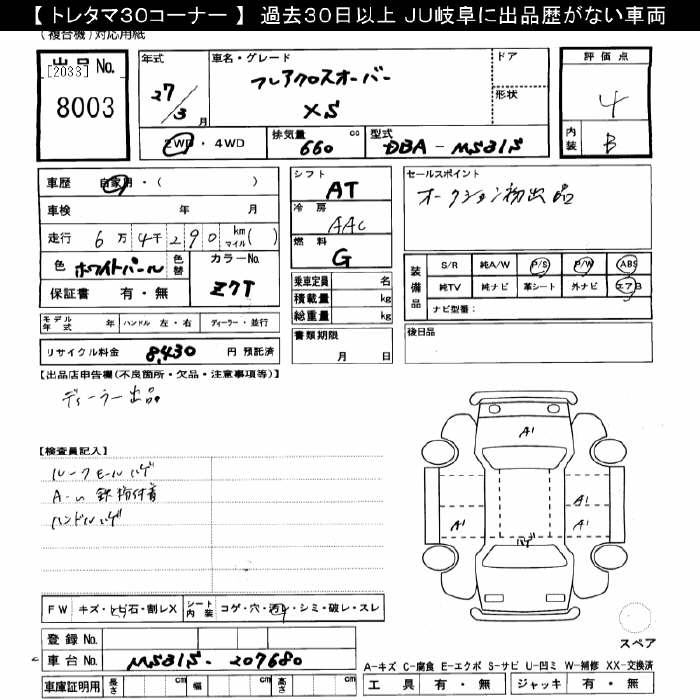 【トレタマ30コーナー】 過去30日以上 JU岐阜に出品歴がない車両
(複合機)対応用紙
出品 No.
[2033]
8003
年式
27/3月
車名・グレード
フレアクロスオーバー
XS
ドア
形状
評価点
4
内装
B
2WD・4WD
排気量 660 cc
型式 DBA-MS31S
車歴 自家用・( )
車検 年 月
走行 6万4千290 km マイル( )
色 ホワイトパール 色替
カラーNo. Z7T
保証書 有・無
シフト
AT
冷房
AAC
燃料
G
乗車定員 名
積載量 kg
総重量 kg
書類期限
月 日
セールスポイント
オークション初出品
装備品
S/R 純A/W P/S P/W ABS
純TV 純ナビ 革シート 外ナビ エアB
ナビ型番:
後日品
モデル年式 年 ハンドル 左・右 ディーラー・並行
リサイクル料金 8,430 円 預託済
【出品店申告欄(不良箇所・欠品・注意事項等)】
ディーラー出品
【検査員記入】
ルーフモールハゲ
鉄粉付着
ハンドルハゲ
A1
A1
A1
A1
ハゲ
FW キズ・トビ石・割レX シート内装 コゲ・穴・汚レ・シミ・破レ・スレ
スペア
登録 No.
車台 No. MS31S-207680
車庫証明用 長さ cm 幅 cm 高さ cm
A-キズ C-腐食 E-エクボ S-サビ U-凹ミ W-補修 XX-交換済
工具 有・無 ジャッキ 有・無